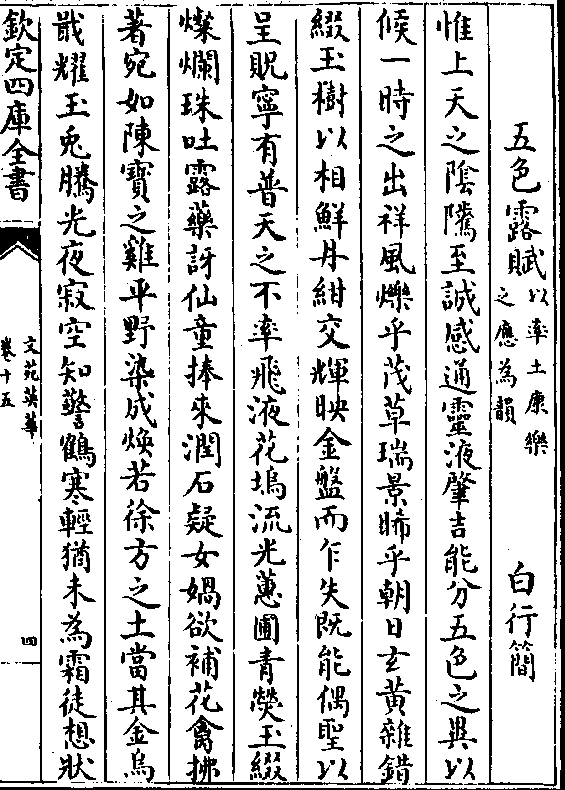 五色露賦 以率土康樂之應為韻 白行簡
惟上天之陰隲至誠感通靈液肇吉能分五色之異以
候一時之出祥風爍乎茂草瑞景晞乎朝日玄黄雜錯
綴玉樹以相鮮丹紺交輝映金盤而乍失既能偶聖以
呈貺寧有普天之不率飛液花塢流光蕙圃青熒玉綴
燦爛珠吐露藥訝仙童捧來潤石疑女媧欲補花禽拂
著宛如陳寶之雞平野染成煥若徐方之土當其金烏
戢耀玉兎騰光夜寂空知警鶴寒輕猶未為霜徒想狀
欽定四庫全書
文苑英華
卷十五
四